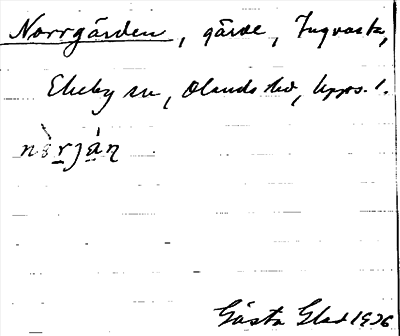 Norrgärden, gärde, Tugvasta,
Ekeby sn, Olands hd, Upps. l.
Gösta Glad 1926